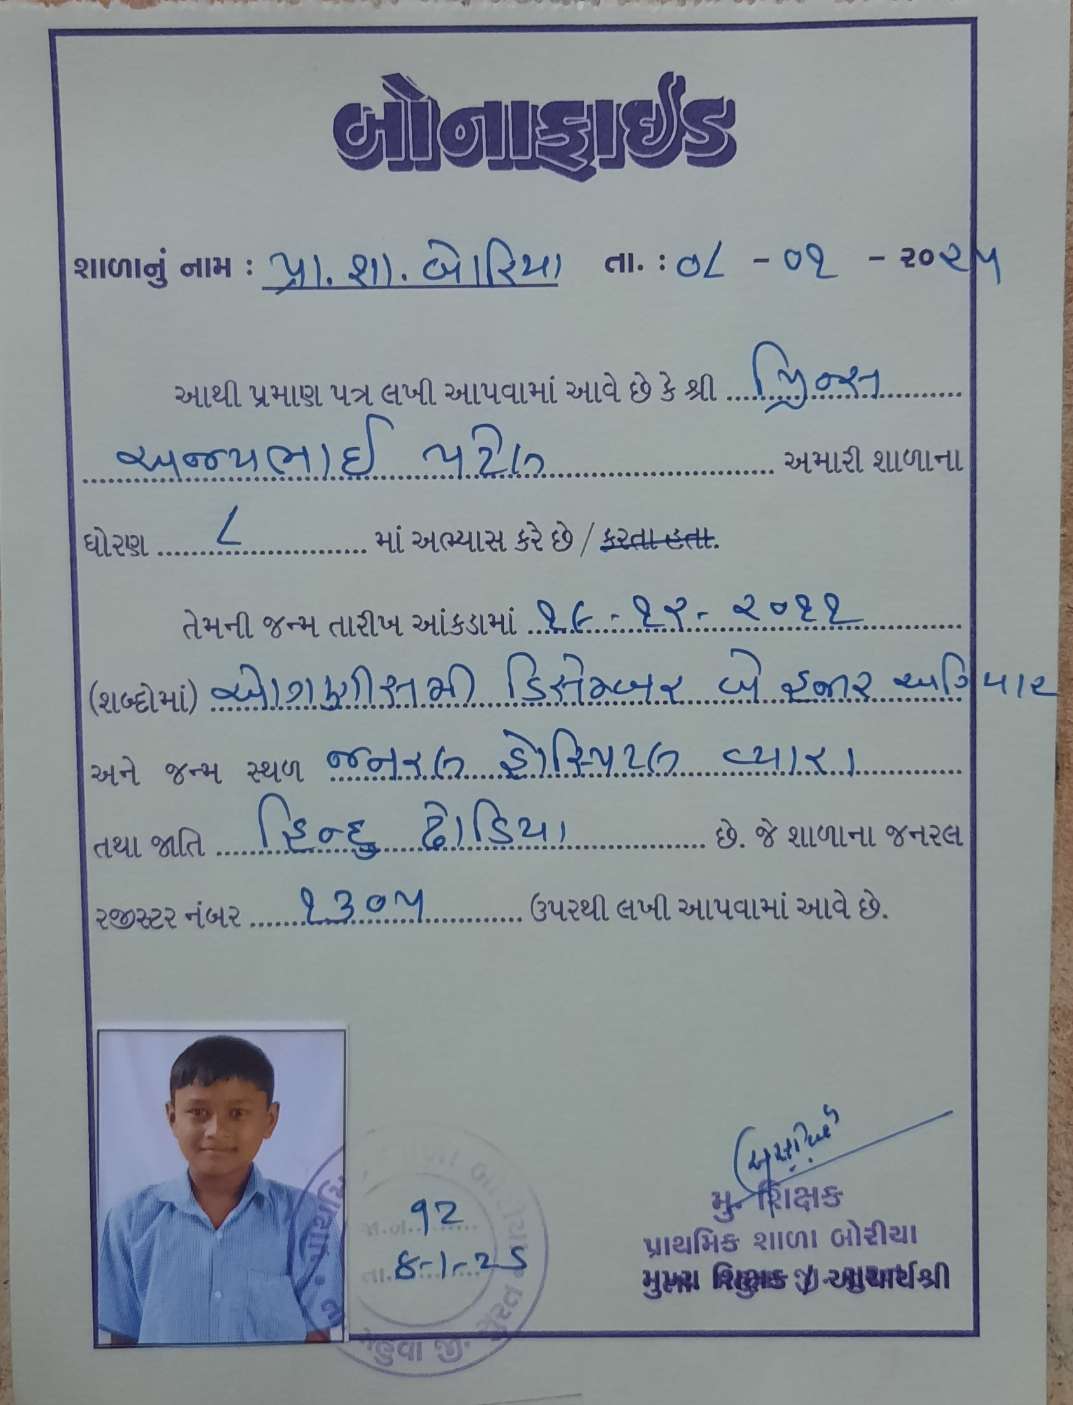 બોનાફાઈડ
શાળાનું નામ : પ્રા. શા. બોરિયા તા. : ૦૮ - ૦૧ - ૨૦૨૫
આથી પ્રમાણ પત્ર લખી આપવામાં આવે છે કે શ્રી પ્રિન્સ
અજયભાઈ પટેલ અમારી શાળાના
ધોરણ ૮ માં અભ્યાસ કરે છે / કરતા હતા.
તેમની જન્મ તારીખ આંકડામાં ૧૯ - ૧૨ - ૨૦૧૧
(શબ્દોમાં) ઓગણીસમી ડિસેમ્બર બે હજાર અગિયાર
અને જન્મ સ્થળ જનરલ હોસ્પિટલ વ્યારા
તથા જાતિ હિન્દુ ઢોડિયા છે. જે શાળાના જનરલ
રજીસ્ટર નંબર ૧૩૦૫ ઉપરથી લખી આપવામાં આવે છે.
જા.નં. 92
તા. 8-1-25
મહુવા જી. સુરત
મુ. શિક્ષક
પ્રાથમિક શાળા બોરીયા
મુખ્ય શિક્ષક / આચાર્યશ્રી